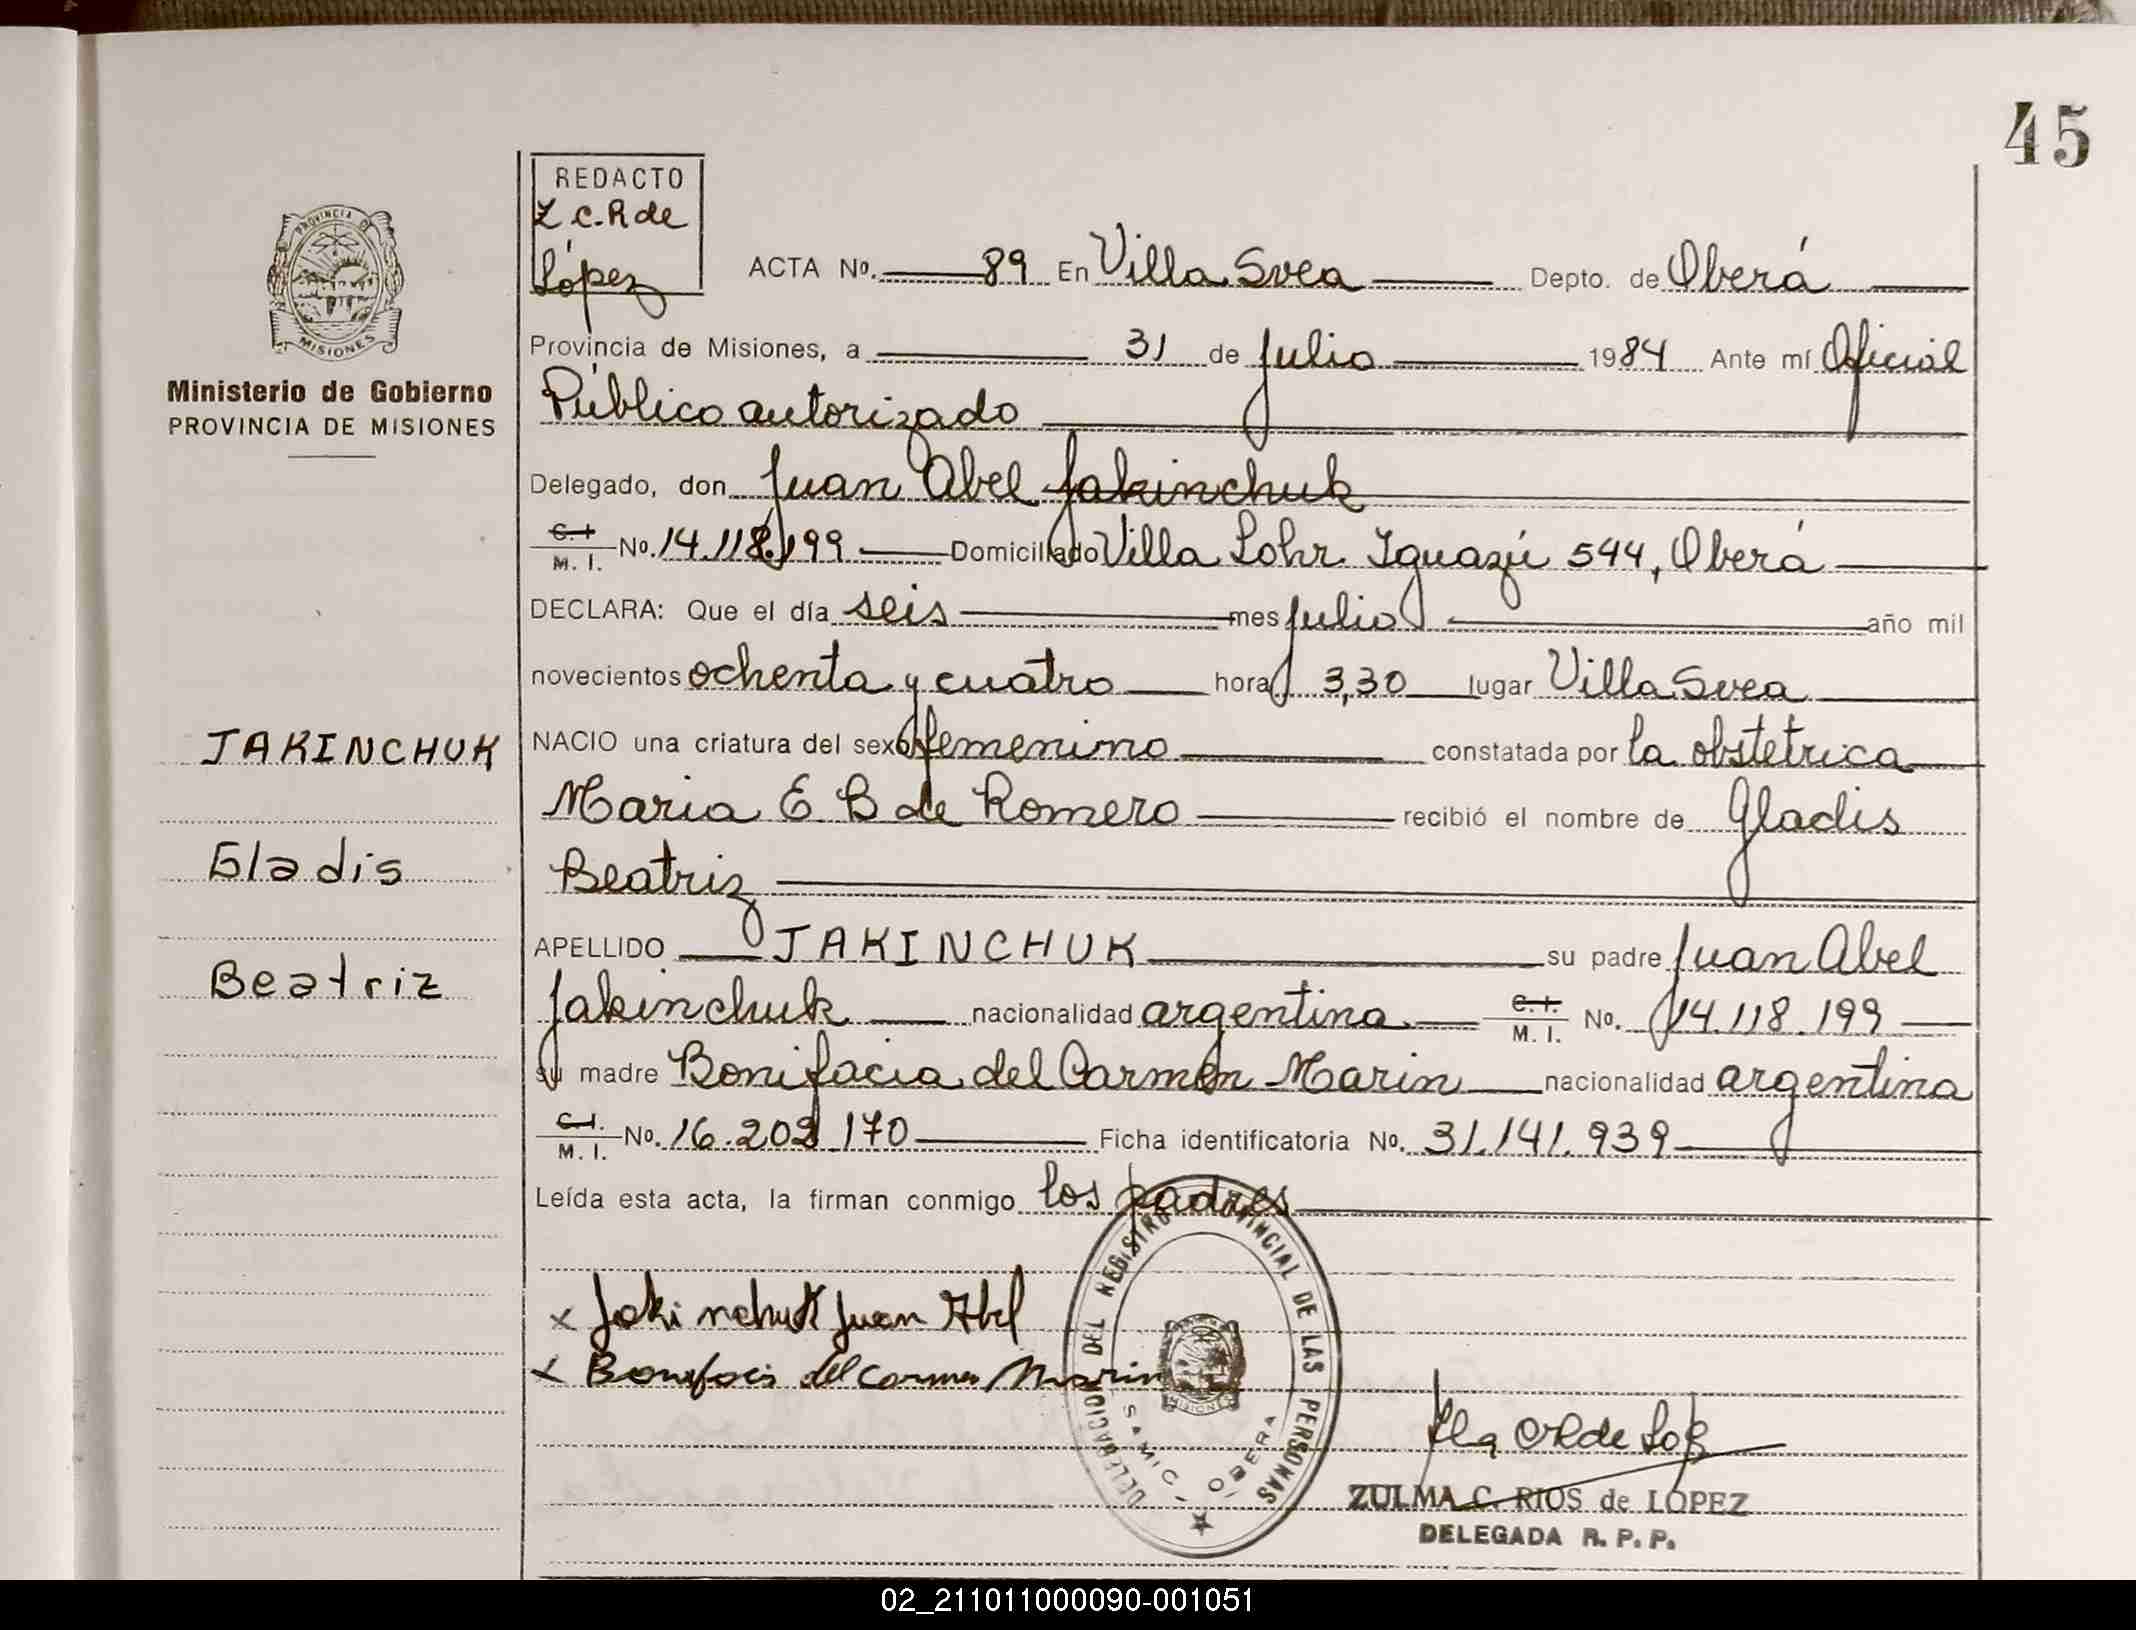 45
REDACTO
Z C.R de
López
ACTA No. 89 En Villa Svea Depto. de Oberá
Provincia de Misiones, a 31 de julio 1984 Ante mí Oficial
Público autorizado
Delegado, don Juan Abel Jakinchuk
C.I. M. I. No. 14.118.199 Domiciliado Villa Lohr Iguazú 544, Oberá
DECLARA: Que el día seis mes julio año mil
novecientos ochenta y cuatro hora 3,30 lugar Villa Svea
NACIO una criatura del sexo femenino constatada por la obstetrica
Maria E B de Romero recibió el nombre de Gladis
Beatriz
APELLIDO JAKINCHUK su padre Juan Abel
Jakinchuk nacionalidad argentina C.I. M. I. No. 14.118.199
su madre Bonifacia del Carmen Marin nacionalidad argentina
C.I. M. I. No. 16.202.170 Ficha identificatoria No. 31.141.939
Leída esta acta, la firman conmigo los padres
x Jakinchuk Juan Abel
x Bonifacia del Carmen Marin
PROVINCIA DE MISIONES
Ministerio de Gobierno
PROVINCIA DE MISIONES
JAKINCHUK
Gladis
Beatriz
DELEGACIO DEL REGISTRO PROVINCIAL DE LAS PERSONAS
MISIONES
SAMIC - OBERA
ZULMA C. RIOS de LOPEZ
DELEGADA R. P. P.
02_211011000090-001051